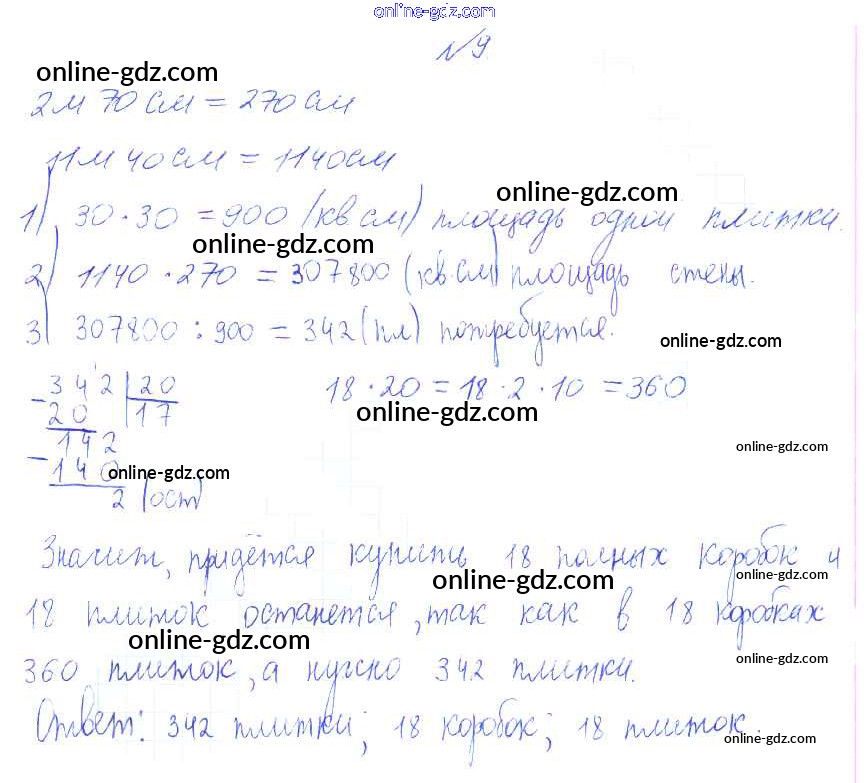 online-gdz.com
№9.
online-gdz.com
2м 70см = 270см
11м 40см = 1140см
online-gdz.com
1) 30·30 = 900 (кв.см) площадь одной плитки.
online-gdz.com
2) 1140·270 = 307800 (кв.см) площадь стены.
3) 307800 : 900 = 342 (пл) потребуется.
online-gdz.com
- 342 | 20
20 | 17
142
- 140
2 (ост)
18·20 = 18·2·10 = 360
online-gdz.com
online-gdz.com
online-gdz.com
Значит, придётся купить 18 полных коробок и
online-gdz.com
online-gdz.com
18 плиток останется, так как в 18 коробках
online-gdz.com
online-gdz.com
360 плиток, а нужно 342 плитки.
Ответ: 342 плитки; 18 коробок; 18 плиток.
online-gdz.com